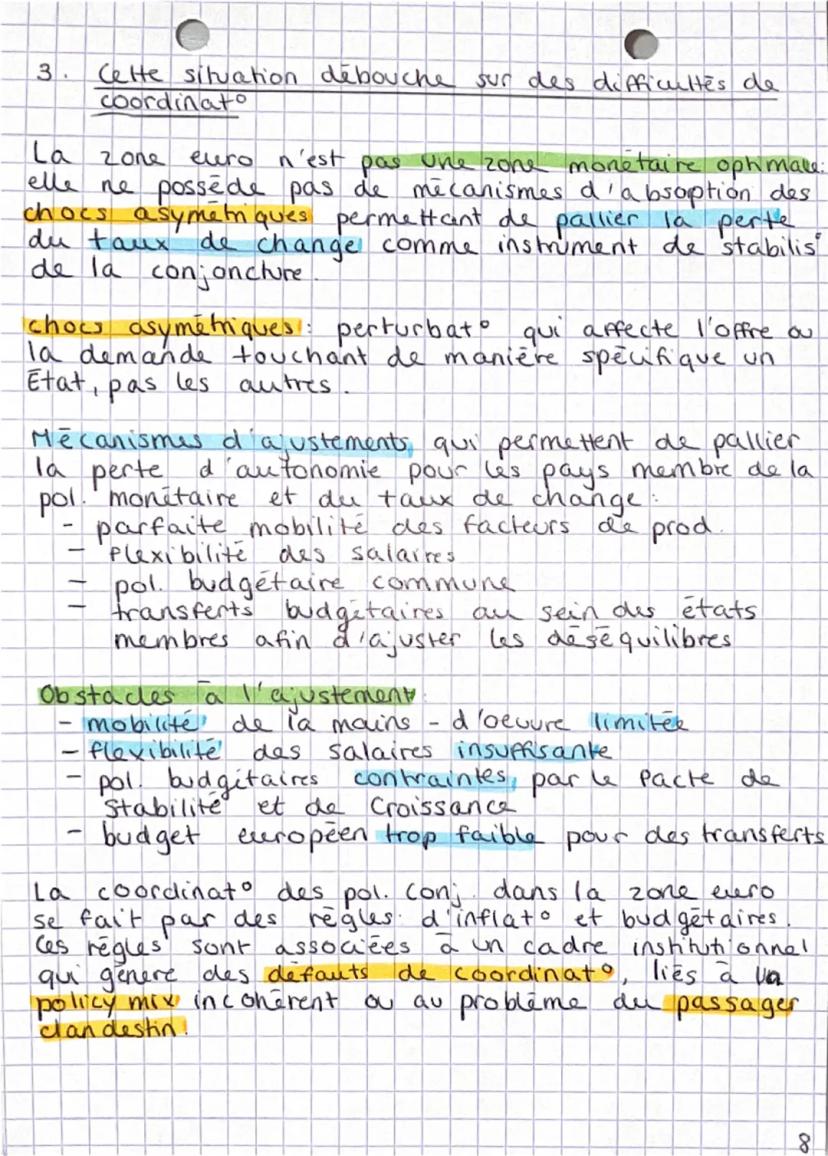 3. Cette situation débouche sur des difficultés de
coordinat°
La zone euro n'est pas une zone monétaire optimale:
elle ne possède pas de mécanismes d'absoption des
chocs asymétriques permettant de pallier la perte
du taux de change comme instrument de stabilis°
de la conjoncture.
chocs asymétriques: perturbat° qui affecte l'offre ou
la demande touchant de manière spécifique un
État, pas les autres.
Mécanismes d'ajustements, qui permettent de pallier
la perte d'autonomie pour les pays membre de la
pol. monétaire et du taux de change:
- parfaite mobilité des facteurs de prod.
- flexibilité des salaires
- pol. budgétaire commune
- transferts budgétaires au sein des états
membres afin d'ajuster les déséquilibres
Obstacles à l'ajustement:
- mobilité de la mains-d'oeuvre limitée
- flexibilité des salaires insuffisante
- pol. budgétaires contraintes, par le Pacte de
Stabilité et de Croissance
- budget européen trop faible pour des transferts
La coordinat° des pol. conj. dans la zone euro
se fait par des règles d'inflat° et budgétaires.
Ces règles sont associées à un cadre institutionnel
qui génère des défauts de coordinat°, liés à un
policy mix incohérent ou au problème du passager
clandestin.
8